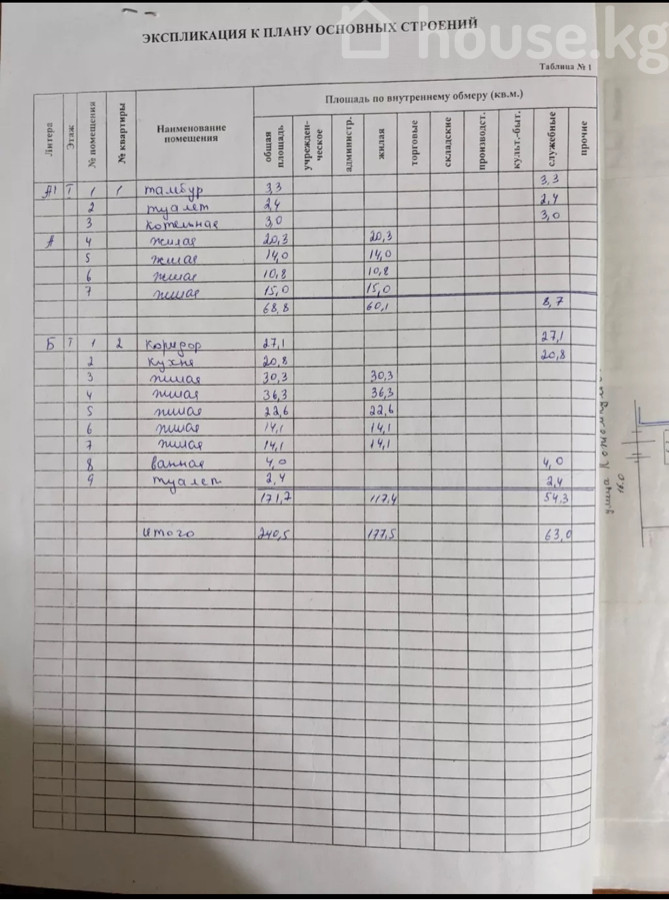 house.kg
ЭКСПЛИКАЦИЯ К ПЛАНУ ОСНОВНЫХ СТРОЕНИЙ
Таблица № 1
Литера Этаж № помещения № квартиры Наименование помещения Площадь по внутреннему обмеру (кв.м.)
общая площадь учрежден-ческое администр. жилая торговые складские производст. культ.-быт. служебные прочие
А1 1 1 1 тамбур 3,3 3,3
2 туалет 2,4 2,4
3 котельная 3,0 3,0
А 4 жилая 20,3 20,3
5 жилая 14,0 14,0
6 жилая 10,8 10,8
7 жилая 15,0 15,0
68,8 60,1 8,7
Б 1 1 2 коридор 27,1 27,1
2 кухня 20,8 20,8
3 жилая 30,3 30,3
4 жилая 36,3 36,3
5 жилая 22,6 22,6
6 жилая 14,1 14,1
7 жилая 14,1 14,1
8 ванная 4,0 4,0
9 туалет 2,4 2,4
171,7 117,4 54,3
Итого 240,5 177,5 63,0